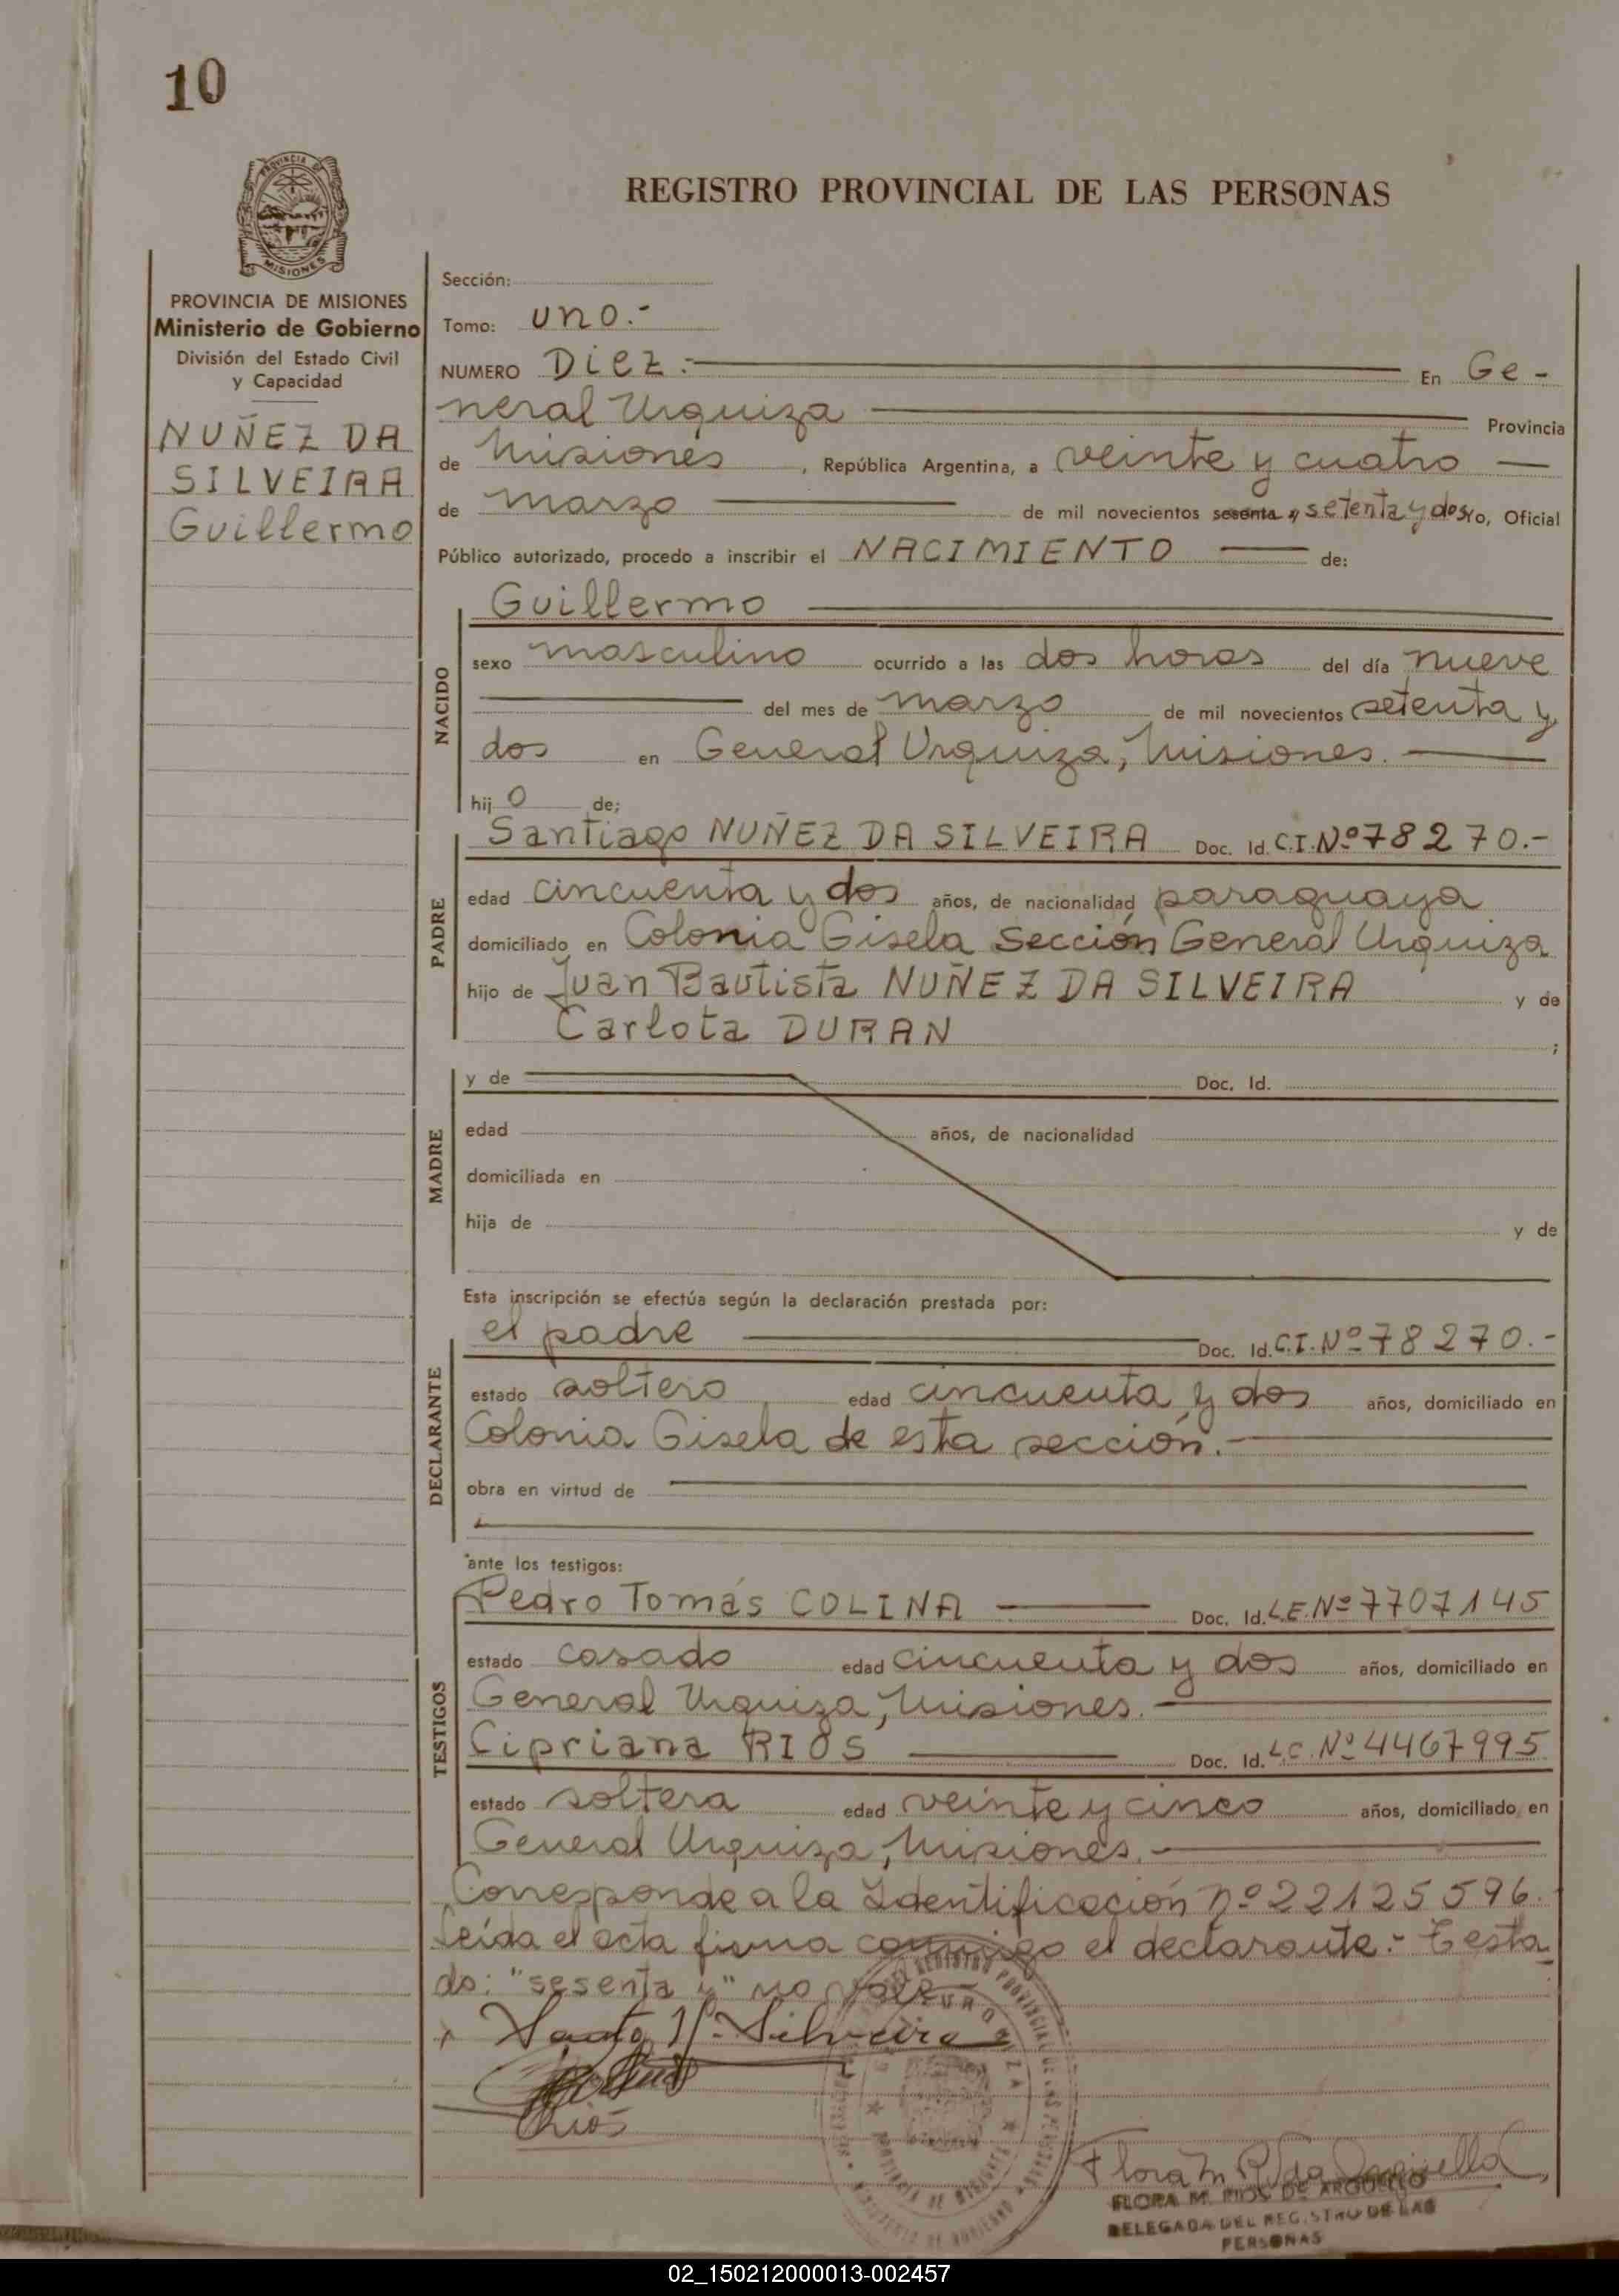 10
PROVINCIA DE
MISIONES
REGISTRO PROVINCIAL DE LAS PERSONAS
PROVINCIA DE MISIONES
Ministerio de Gobierno
División del Estado Civil
y Capacidad
NUÑEZ DA
SILVEIRA
Guillermo
Sección:
Tomo: uno.-
NUMERO Diez.- En Ge-
neral Urquiza Provincia
de Misiones, República Argentina, a veinte y cuatro
de marzo de mil novecientos sesenta y setenta y dos Yo, Oficial
Público autorizado, procedo a inscribir el NACIMIENTO de:
NACIDO
Guillermo
sexo masculino ocurrido a las dos horas del día nueve
del mes de marzo de mil novecientos setenta y
dos en General Urquiza, Misiones.
hijo de:
PADRE
Santiago NUÑEZ DA SILVEIRA Doc. Id. C.I. Nº 78270.-
edad cincuenta y dos años, de nacionalidad paraguaya
domiciliado en Colonia Gisela Sección General Urquiza
hijo de Juan Bautista NUÑEZ DA SILVEIRA y de
Carlota DURAN ;
MADRE
y de Doc. Id.
edad años, de nacionalidad
domiciliada en
hija de y de
Esta inscripción se efectúa según la declaración prestada por:
DECLARANTE
el padre Doc. Id. C.I. Nº 78270.-
estado soltero edad cincuenta y dos años, domiciliado en
Colonia Gisela de esta sección.-
obra en virtud de
ante los testigos:
TESTIGOS
Pedro Tomás COLINA Doc. Id. L.E. Nº 7707145
estado casado edad cincuenta y dos años, domiciliado en
General Urquiza, Misiones.
Cipriana RIOS Doc. Id. L.C. Nº 4467995
estado soltera edad veinte y cinco años, domiciliado en
General Urquiza, Misiones.-
Corresponde a la Identificación nº 22125596.
Leída el acta firma conmigo el declarante.- Testa
do: "sesenta y" no vale.-
Santg N. Silveira
Rios
Flora M. R. de
FLORA M. RIOS DE ARGUELLO
DELEGADA DEL REGISTRO DE LAS
PERSONAS
02_150212000013-002457